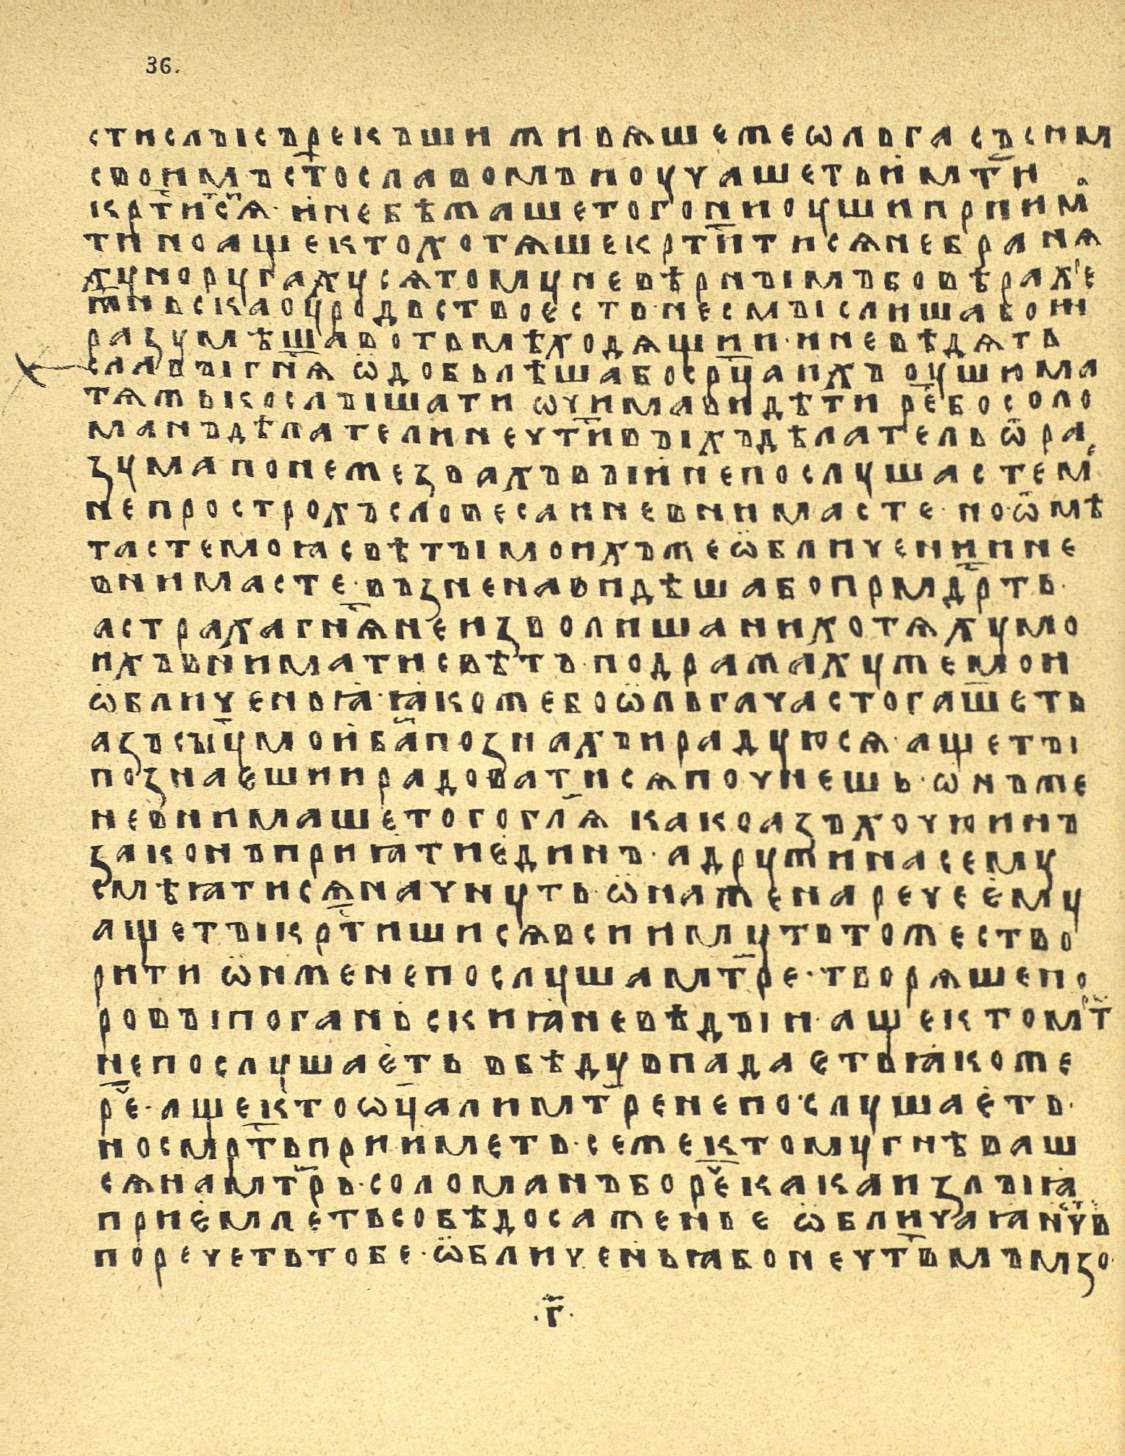 36.
стислъісъ рекъши живѧшеже ѡльга съсн҃м
своимъ ст҃ославомъ и оучашетьи мт҃и
крт҃ис̑ѧ · и небѣжашетого ни оуши прииⷨ
ти но аще кто хотѧше крт҃итисѧ не бранѧ
ху но ругахусѧ тому невѣрнъімъ бо вѣра хе҇
жньска оуродьство єсть не смъіслиша бо ни
разумѣша во тьмѣ ходѧщии и не вѣдѧть
славъі гн҃ѧ ѡ҃добьлѣша бо срц҃а ихъ оушима
тѧжько слъішати ѡчима видѣти реⷱ҇ бо соло
манъ дѣлатели неч҇тивъіхъ дѣлатель ѡ҃ ра
зума понеже звахъ въі и не послушастемⷷ
не прострохъ словеса и не внимасте · но ѿмѣ
тасте моӕ свѣтъі моихъ же ѡ҃бличении не
внимасте · възненавидѣша бо прмⷣрть ·
а страха гн҃ѧ не изволиша ни хотѧху мо
ихъ внимати свѣтъ · подражаху же мои
ѡ҃бличеньӕ · ӕкоже бо ѡ҃льга часто гл҃ашеть
азъ сн҃у мой ба҃ познахъ и радуюсѧ · аще тъі
познаеши и радоватисѧ почнешь · ѡнъ же
не внимаше того гл҃ѧ како азъ хочю инъ
законъ прпӕти единъ · а дружина сему
смѣӕтисѧ начнуть · ѡ҃на же нарече єму
аще тъі крт҃ишисѧ вси имуть тоже ство
рити ѡ҃нже не послуша мт҃ре · творѧше но
ровъі поганьскиӕ не вѣдъі и · аще кто мт҃р
не послушаеть въ бѣду впадаеть ӕкоже
реⷱ҇ · аще кто ѡц҃а ли мт҃ре не послушаеть ·
но смр҃ть прииметь · се же к тому гнѣваш
сѧ на мт҃рь · соломанъ бо реⷱ҇ какаи злъіӕ
приемлеть собѣ досаженье ѡ҃бличаӕ неч҇в
порочеть тобе · ѡ҃бличеньӕ бо неч҇тьмъ мзо
·г҃·